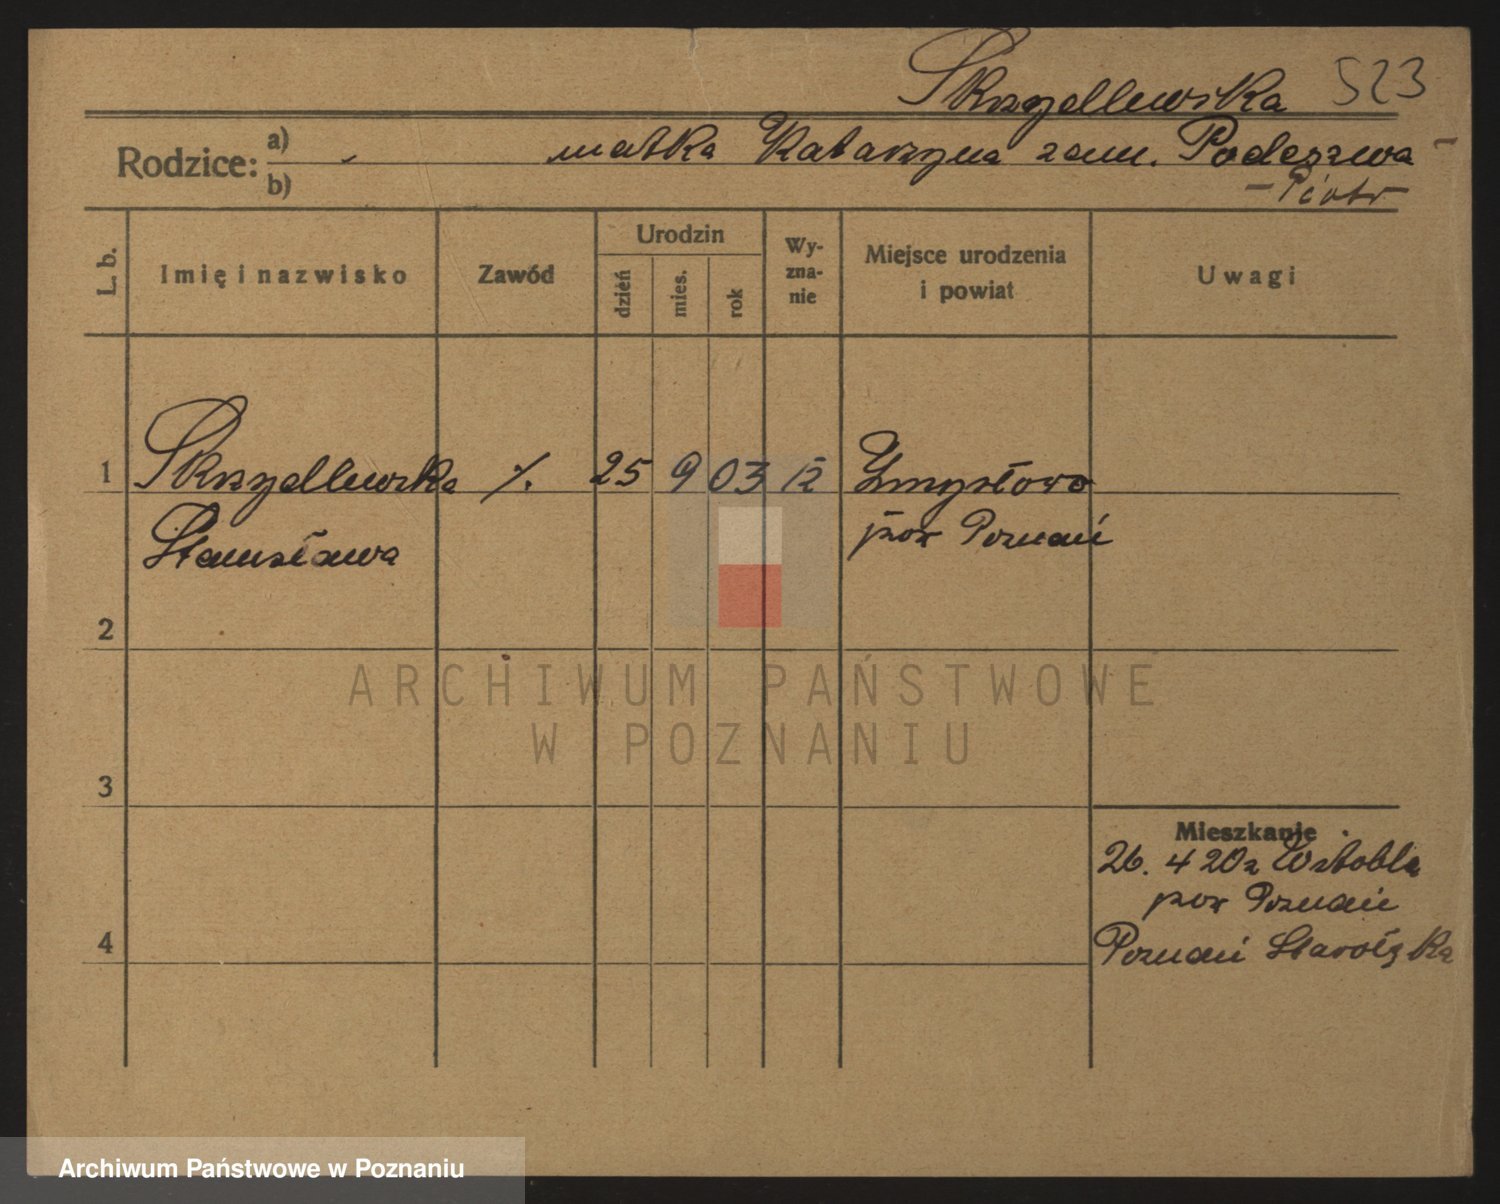 Skrzydlewska 523
Rodzice: a) matka Katarzyna zam. Podeszwa
b) – Piotr –
L. b. Imię i nazwisko Zawód Urodzin dzień mies. rok Wy-zna-nie Miejsce urodzenia i powiat Uwagi
1 Skrzydlewska ./. 25 9 03 k Zmysłowo
Stanisława pow Poznań
2
ARCHIWUM PAŃSTWOWE
W POZNANIU
3
Mieszkanie
26. 4 20 z Wstobla
pow Poznań
4 Poznań Starołęka
Archiwum Państwowe w Poznaniu